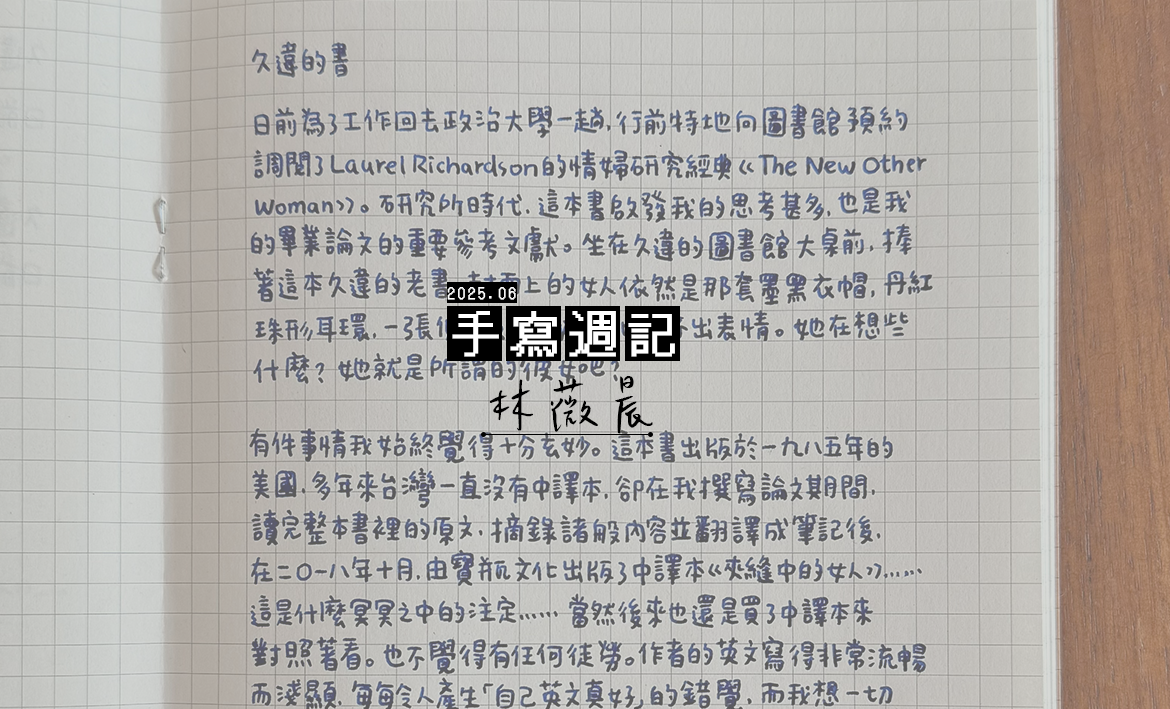 久違的書
日前為了工作回去政治大學一趟，行前特地向圖書館預約
調閱了Laurel Richardson的情婦研究經典《The New Other
Woman》。研究所時代，這本書啟發我的思考甚多，也是我
的畢業論文的重要參考文獻。坐在久違的圖書館大桌前，捧
著這本久違的老書，封面上的女人依然是那套墨黑衣帽，丹紅
2025.06
珠形耳環，一張 出表情。她在想些
手寫週記
什麼？她就是所謂的彼女吧？
林薇晨
有件事情我始終覺得十分玄妙。這本書出版於一九八五年的
美國，多年來台灣一直沒有中譯本，卻在我撰寫論文期間，
讀完整本書裡的原文，摘錄諸般內容並翻譯成筆記後，
在二〇一八年十月，由寶瓶文化出版了中譯本《夾縫中的女人》……
這是什麼冥冥之中的注定……當然後來也還是買了中譯本來
對照著看。也不覺得有任何徒勞。作者的英文寫得非常流暢
而淺顯，每每令人產生「自己英文真好」的錯覺，而我想一切